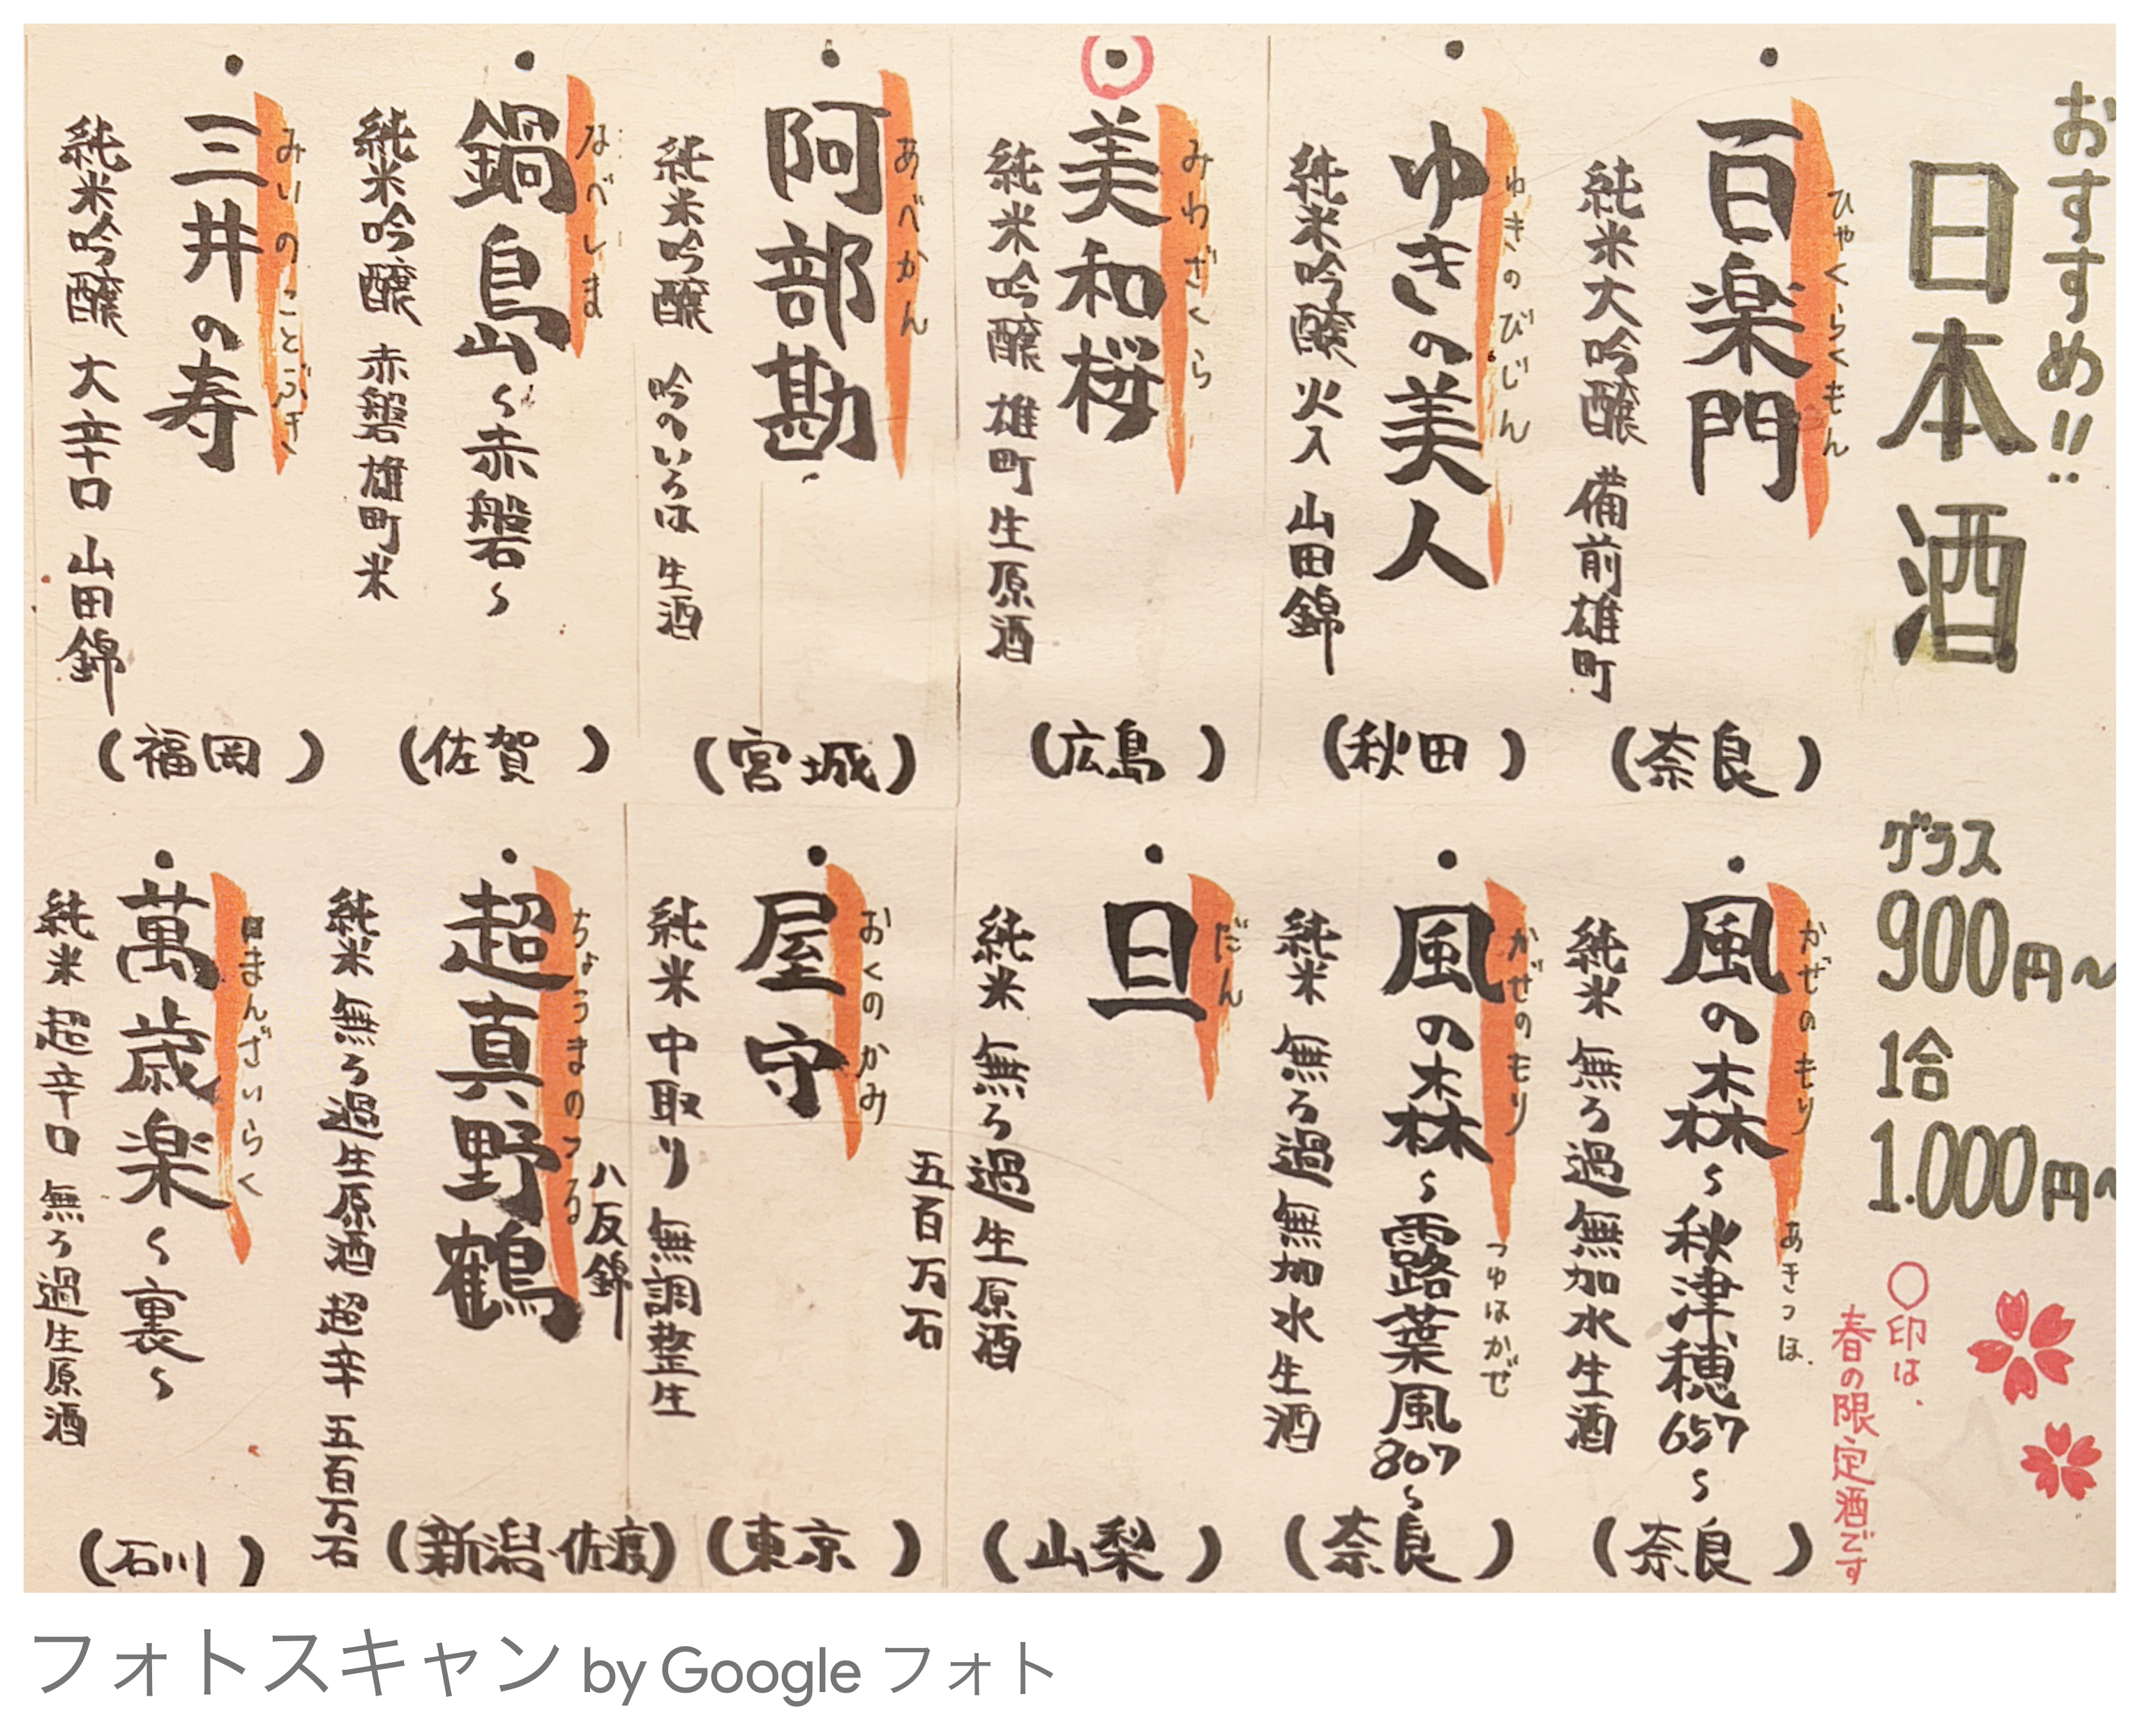 おすすめ!!
日本酒
グラス
900円〜
1合
1.000円〜
○印は、
春の限定酒です
ひゃくらくもん
・百楽門
純米大吟醸 備前雄町
(奈良)
ゆきのびじん
・ゆきの美人
純米吟醸 火入 山田錦
(秋田)
みわざくら
・美和桜
純米吟醸 雄町 生原酒
(広島)
あべかん
・阿部勘
純米吟醸 吟のいろは 生酒
(宮城)
なべしま
・鍋島〜赤磐〜
純米吟醸 赤磐雄町米
(佐賀)
みいのことぶき
・三井の寿
純米吟醸 大辛口 山田錦
(福岡)
かぜのもり あきつほ
・風の森〜秋津穂657〜
純米 無ろ過無加水生酒
(奈良)
かぜのもり つゆはかぜ
・風の森〜露葉風807〜
純米 無ろ過無加水生酒
(奈良)
だん
・旦
純米 無ろ過生原酒
五百万石
(山梨)
おくのかみ
・屋守
純米 中取り 無調整生
八反錦
(東京)
ちょうまのつる
・超真野鶴
純米 無ろ過生原酒 超辛 五百万石
(新潟・佐渡)
まんざいらく
・萬歳楽〜裏〜
純米 超辛口 無ろ過生原酒
(石川)
フォトスキャン by Google フォト